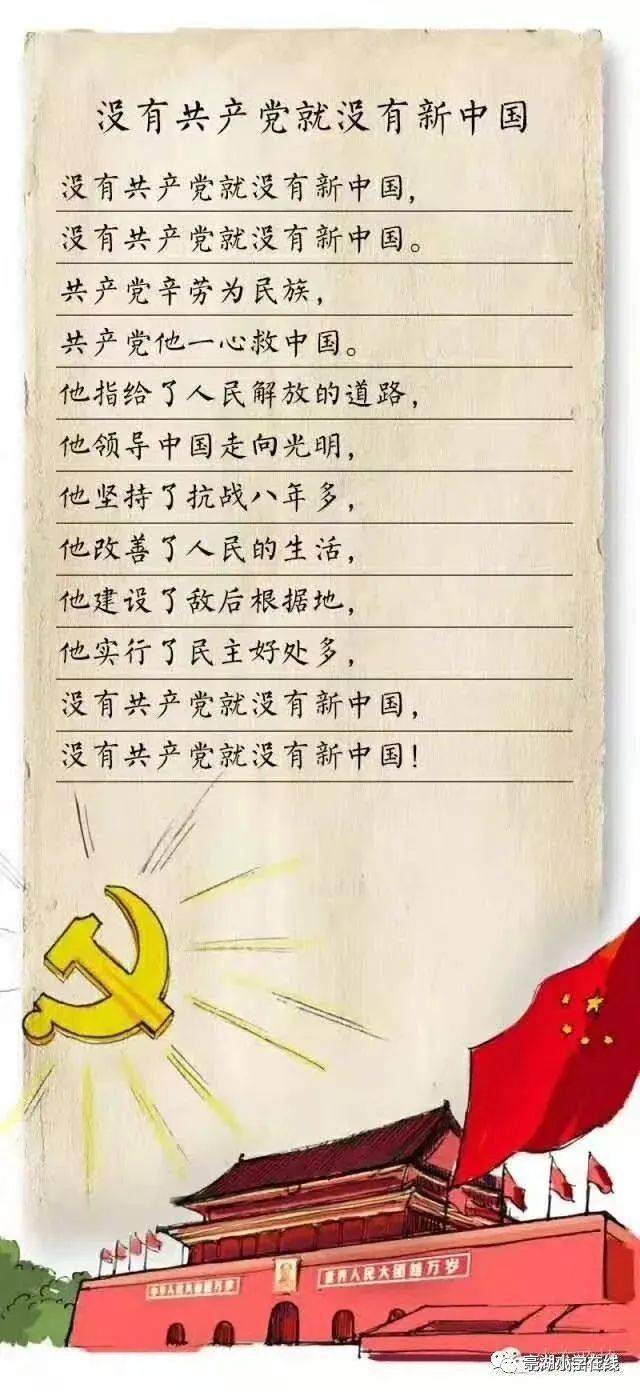 没有共产党就没有新中国
没有共产党就没有新中国，
没有共产党就没有新中国。
共产党辛劳为民族，
共产党他一心救中国。
他指给了人民解放的道路，
他领导中国走向光明，
他坚持了抗战八年多，
他改善了人民的生活，
他建设了敌后根据地，
他实行了民主好处多，
没有共产党就没有新中国，
没有共产党就没有新中国！
人民大团结万岁
亭湖小学在线